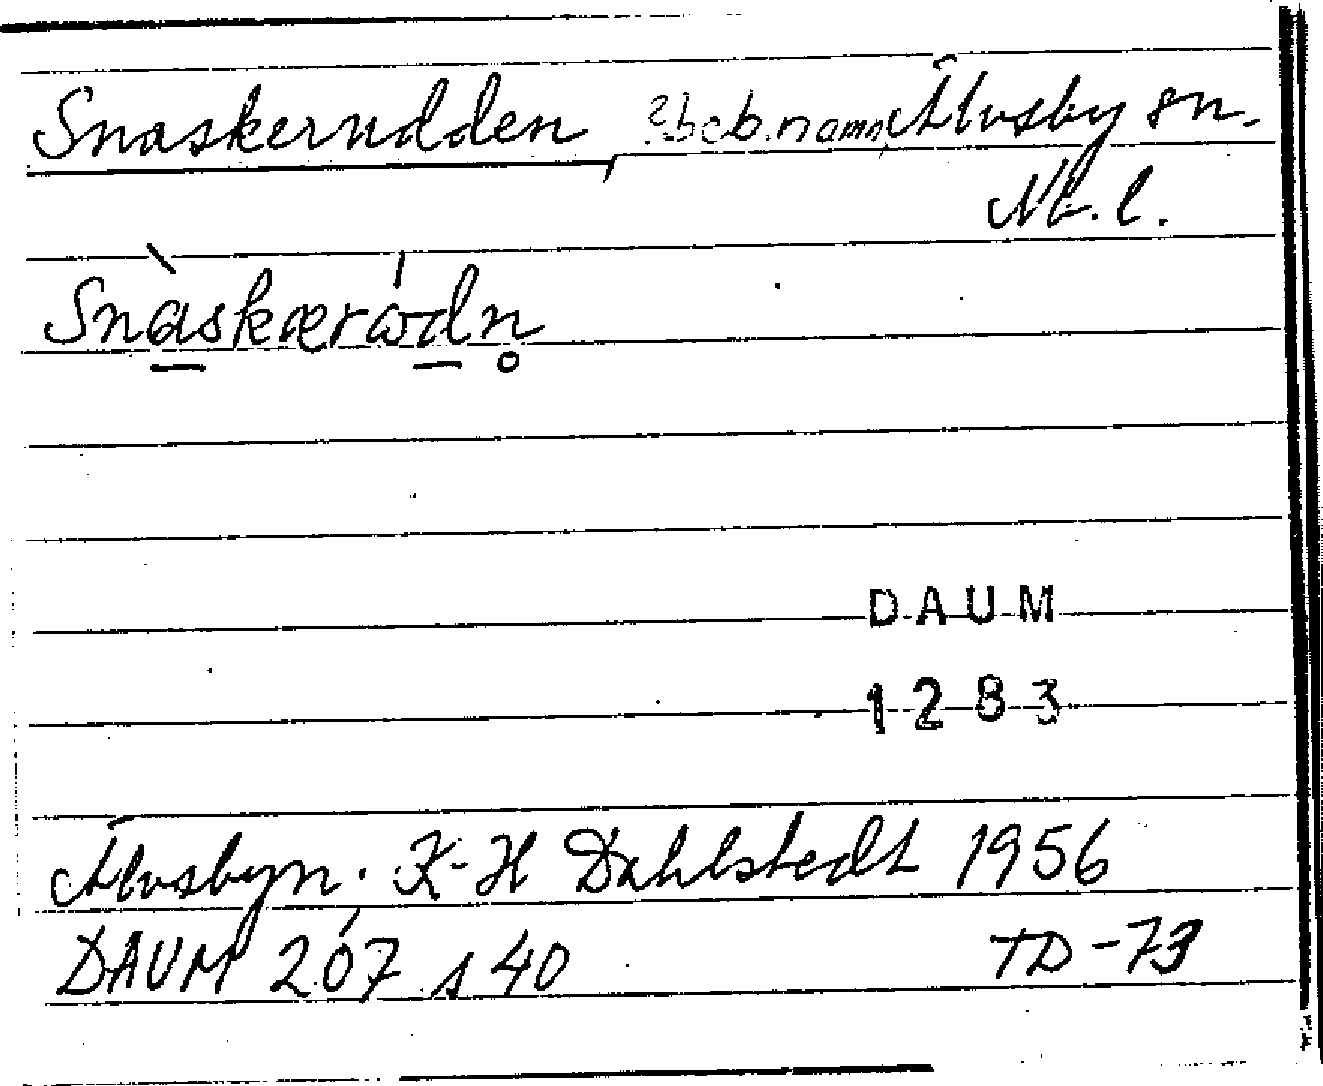 Snaskerudden, ?bebnamn, Älvsby sn.
Nb. l.
Snàskæråd́n̥
DAUM
1283
Älvsbyn. K-H Dahlstedt 1956
DAUM 207 s 40 TD-73